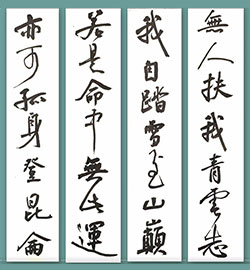 無人扶我青雲志
我自踏雪至山巔
若是命中無此運
亦可孤身登昆侖